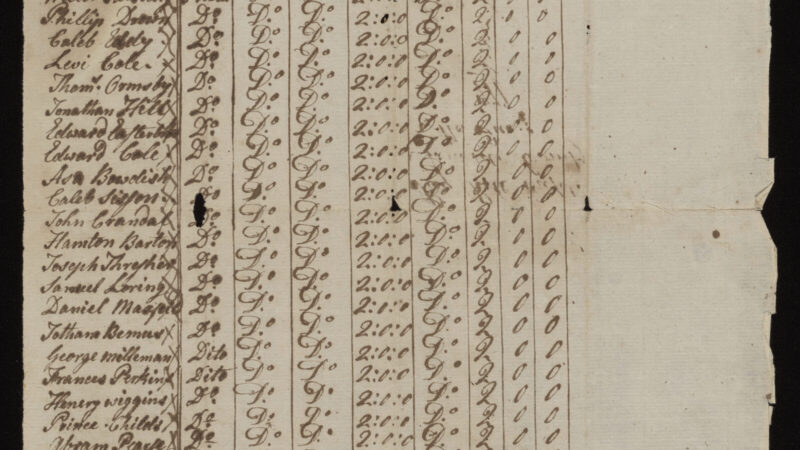 Phillip Drown Do Do Do 2:0:0 Do 2 0 0
Caleb Eddy Do Do Do 2:0:0 Do 2 0 0
Levi Cole Do Do Do 2:0:0 Do 2 0 0
Thoms Ormsby Do Do Do 2:0:0 Do 2 0 0
Jonathan Hill Do Do Do 2:0:0 Do 2 0 0
Edward Do Do Do 2:0:0 Do 2 0 0
Edward Cole Do Do Do 2:0:0 Do 2 0 0
Asa Bowdish Do Do Do 2:0:0 Do 2 0 0
Caleb Sisson Do Do Do 2:0:0 Do 2 0 0
John Crandal Do Do Do 2:0:0 Do 2 0 0
Hamton Barton Do Do Do 2:0:0 Do 2 0 0
Joseph Thresher Do Do Do 2:0:0 Do 2 0 0
Samuel Loring Do Do Do 2:0:0 Do 2 0 0
Daniel Do Do Do 2:0:0 Do 2 0 0
Jotham Bemus Do Do Do 2:0:0 Do 2 0 0
George Milleman Dito Do Do 2:0:0 Do 2 0 0
Frances Perkins Dito Do Do 2:0:0 Do 2 0 0
Henery wiggins Do Do Do 2:0:0 Do 2 0 0
Prince Childs Do Do Do 2:0:0 Do 2 0 0
Abram Pearce Do Do Do 2:0:0 Do 2 0 0